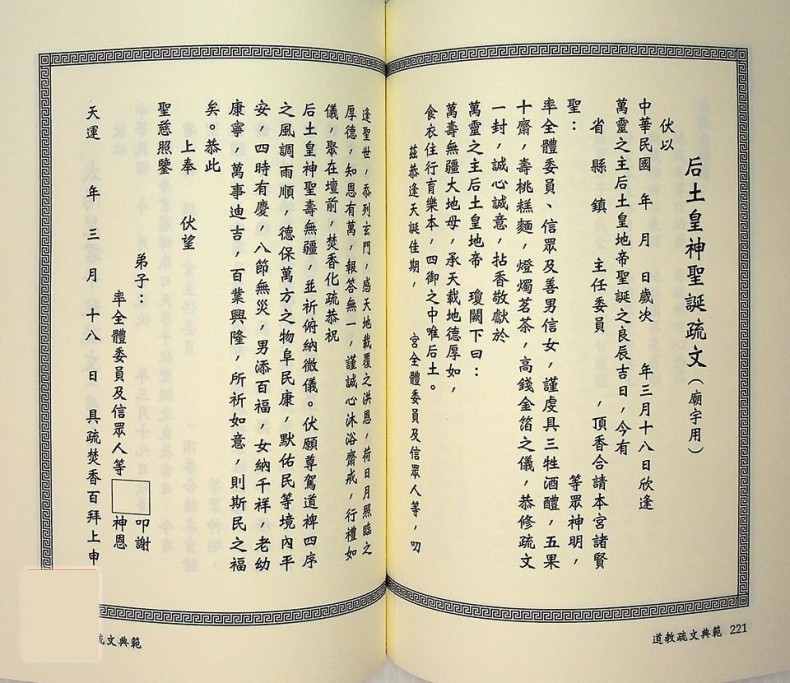 后土皇神聖誕疏文(廟宇用)
伏以
中華民國 年 月 日歲次 年三月十八日欣逢
萬靈之主后土皇地帝聖誕之良辰吉日,今有
省 縣 鎮 主任委員 ,頂香合請本宮諸賢
聖: 等眾神明,
率全體委員、信眾及善男信女,謹虔具三牲酒醴,五果
十齋,壽桃糕麵,燈燭茗茶,高錢金箔之儀,恭修疏文
一封,誠心誠意,拈香敬獻於
萬靈之主后土皇地帝 瓊闕下曰:
萬壽無疆大地母,承天載地德厚如,
食衣住行育樂本,四御之中唯后土。
茲恭逢天誕佳期, 宮全體委員及信眾人等,叨
逢聖世,忝列玄門,感天地載覆之洪恩,荷日月照臨之
厚德,知恩有萬,報答無一,謹誠心沐浴齋戒,行禮如
儀,聚在壇前,焚香化疏恭祝
后土皇神聖壽無疆,並祈俯納微儀。伏願尊駕道裨四序
之風調雨順,德保萬方之物阜民康,默佑民等境內平
安,四時有慶,八節無災,男添百福,女納千祥,老幼
康寧,萬事迪吉,百業興隆,所祈如意,則斯民之福
矣。恭此
上奉 伏望
聖慈照鑒
弟子: 叩謝
率全體委員及信眾人等 神恩
天運 年 三 月 十 八 日 具疏焚香百拜上申
道教疏文典範 221
疏文典範